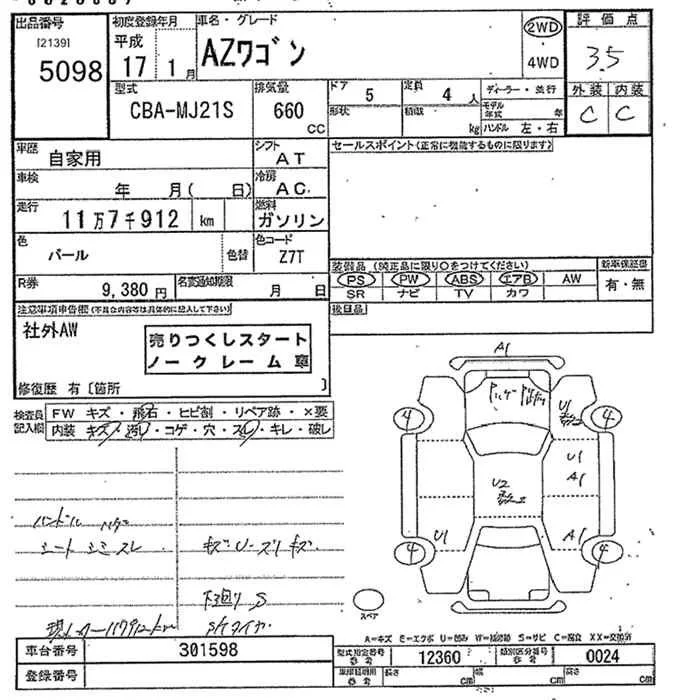 出品番号
[2139]
5098
初度登録年月
平成
17 1月
車名・グレード
AZワゴン
2WD
4WD
評価点
3.5
外装 内装
C C
型式
CBA-MJ21S
排気量
660
CC
ドア
5
定員
4人
形状
積載
kg
ディーラー・並行
モデル年式 年
ハンドル 左・右
車歴
自家用
シフト
AT
セールスポイント(正常に機能するものに限ります)
車検
年 月( 日)
冷房
AC
走行
11万7千912 km
燃料
ガソリン
色
パール
色替
色コード
Z7T
装備品 (純正品に限り○をつけてください)
PS PW ABS エアB AW
SR ナビ TV カワ
新車保証書
有・無
R券
9,380円
名変通知期限
月 日
後日品
注意事項申告欄(不具合内容等は具体的に記入して下さい)
社外AW
売りつくしスタート
ノークレーム車
修復歴 有〔箇所 〕
検査員記入欄
FW キズ・飛石・ヒビ割・リペア跡・×要
内装 キズ・汚れ・コゲ・穴・スレ・キレ・破レ
A1
U1
4
4
U1
A1
U2
U1
A1
4
4
ハンドル
シート シミ スレ
キズ・U・スリキズ
下廻り S
スペア
現メーター117912km
A=キズ E=エクボ U=凹み W=補修跡 S=サビ C=腐食 XX=交換済
車台番号
301598
型式指定番号
参考
12360
類別区分番号
参考
0024
登録番号
車庫証明用
参考
長さ cm
幅 cm
高さ cm